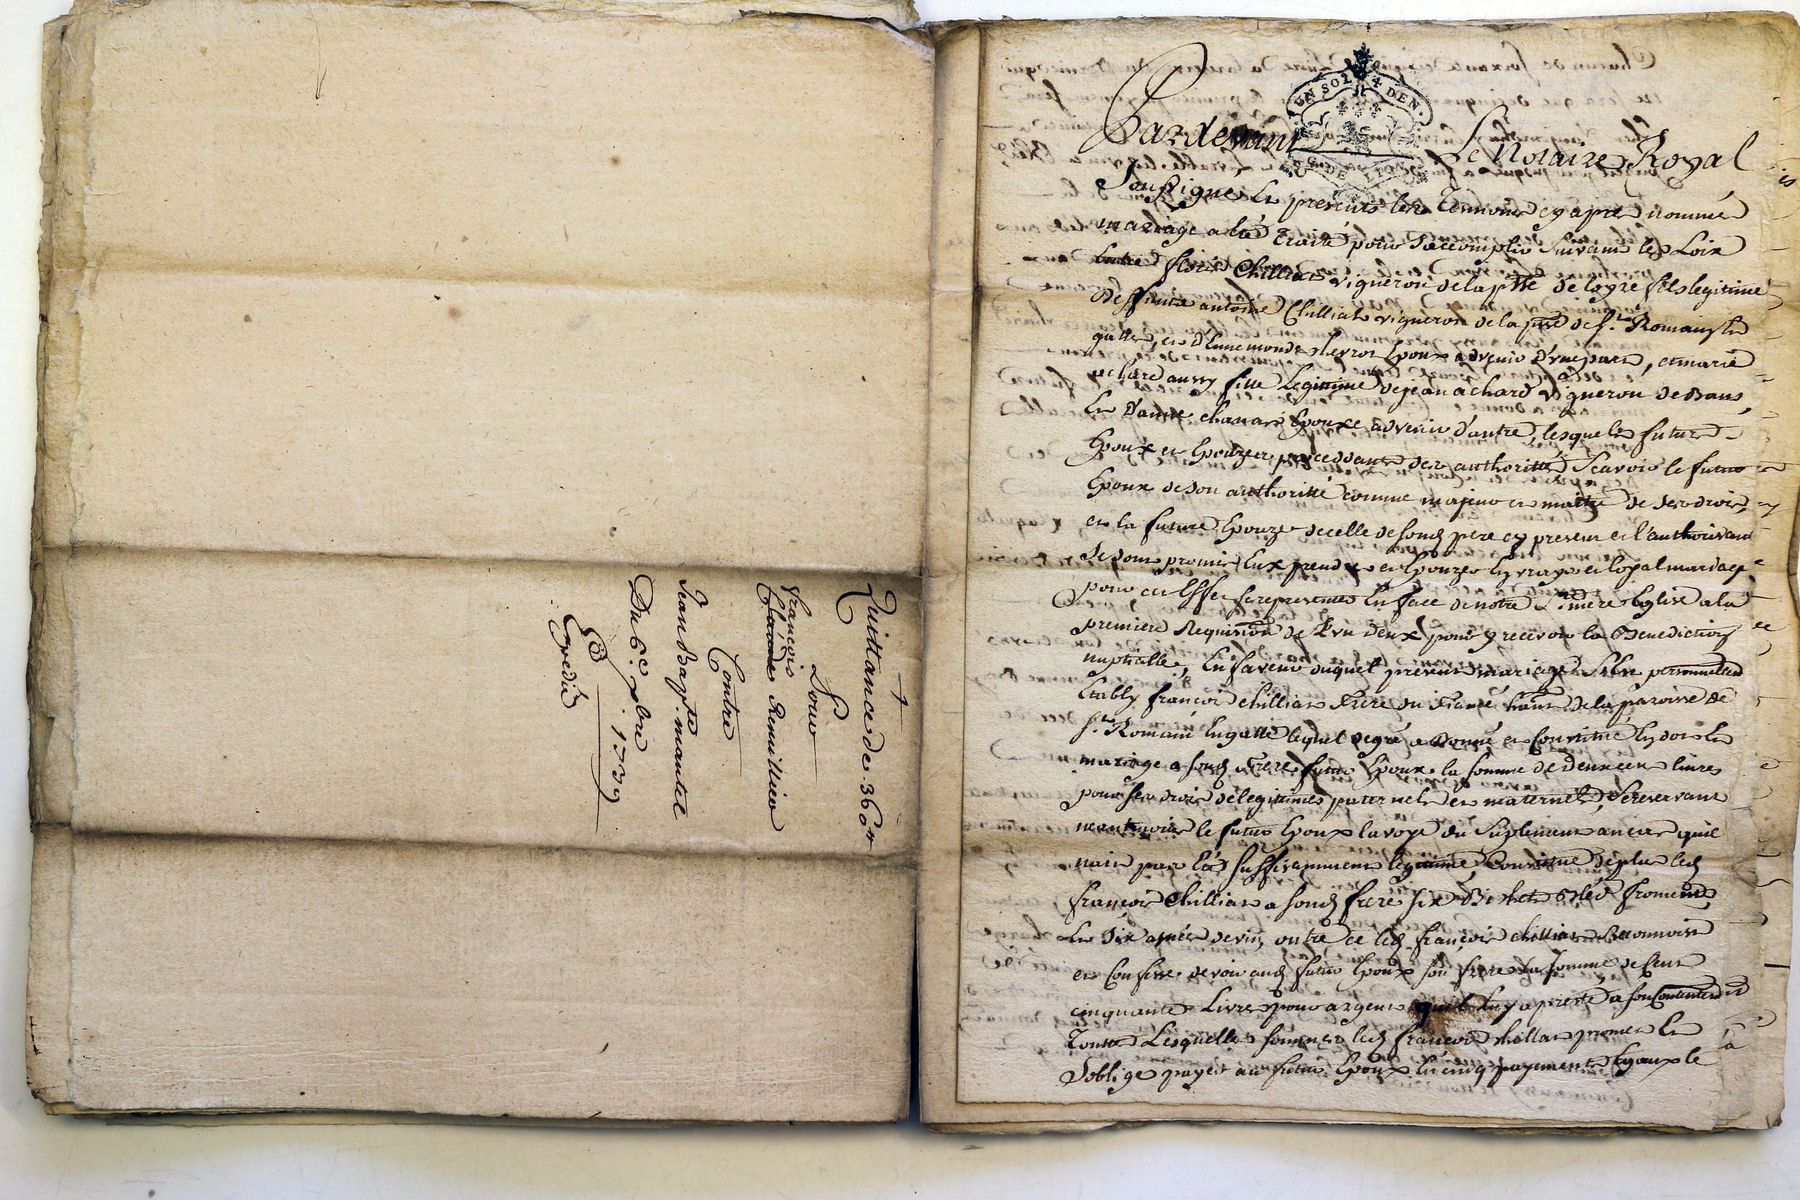 Quittance de 360ᵗᵗ
Pour
françois
Claude Remillieu
Contre
Jean Bapᵗᵉ mantel
Du 6ᵉ xbre 1739
Expedié
UN SOL 4 DEN.
G. DE LYON
Pardevant Le Notaire Royal
Soussigné Et presents les Temoins cy apres nommés
mariage a esté Traité pour s'accomplir suivant les Loix
Entre fleury Chilliat vigneron de la pssᵉ de loyre fils legitime
de ffunt antoine Chilliat vigneron de la pssᵉ de Sᵗ. Romain En
gallet, et d'Ennemonde Epoux advenir d'une part, et marie
achard aussy fille Legitime de jean achard vigneron de Bans
Et d'anne Epouze advenir d'autre, lesquels futurs
Epoux et Epouze procedants des authorités Scavoir le futur
Epoux de son authorité comme majeur et maitre de ses droits
et la future Epouze de celle de sond pere cy present et l'authorisant
se sont promis Eux prendre et Epouzer En vray et loyal mariage
pour cet Effet se representer En face de notre mere Eglise a la
premiere Requisition de l'un d'eux pour y recevoir la Benediction
nuptialle, En faveur duquel present mariage S'est personnellemᵗ
Etably françois chilliat frere du de la paroisse de
Sᵗ Romain En gallet lequel de gré a Donné et Constitué En dot Et
mariage a sond frere futur Epoux la somme de deux cent livres
pour ses droits de legitimes paternels et maternels, se reservant
neantmoins le futur Epoux la voye du suplement au cas quil
n'ait pas Eté suffisamment legitimé, Constitue de plus led
françois Chilliat a sond frere six Bichets Bled froment
Et Six anées de vin, outre ce led françois chilliat Reconnoit
et Confesse devoir aud futur Epoux son frere la somme de Cent
cinquante Livres pour argent quil luy a presté a son contentement
Toutes Lesquelles sommes led françois chilliat promet Et
s'oblige payer au futur Epoux En cinq payements Egaux le